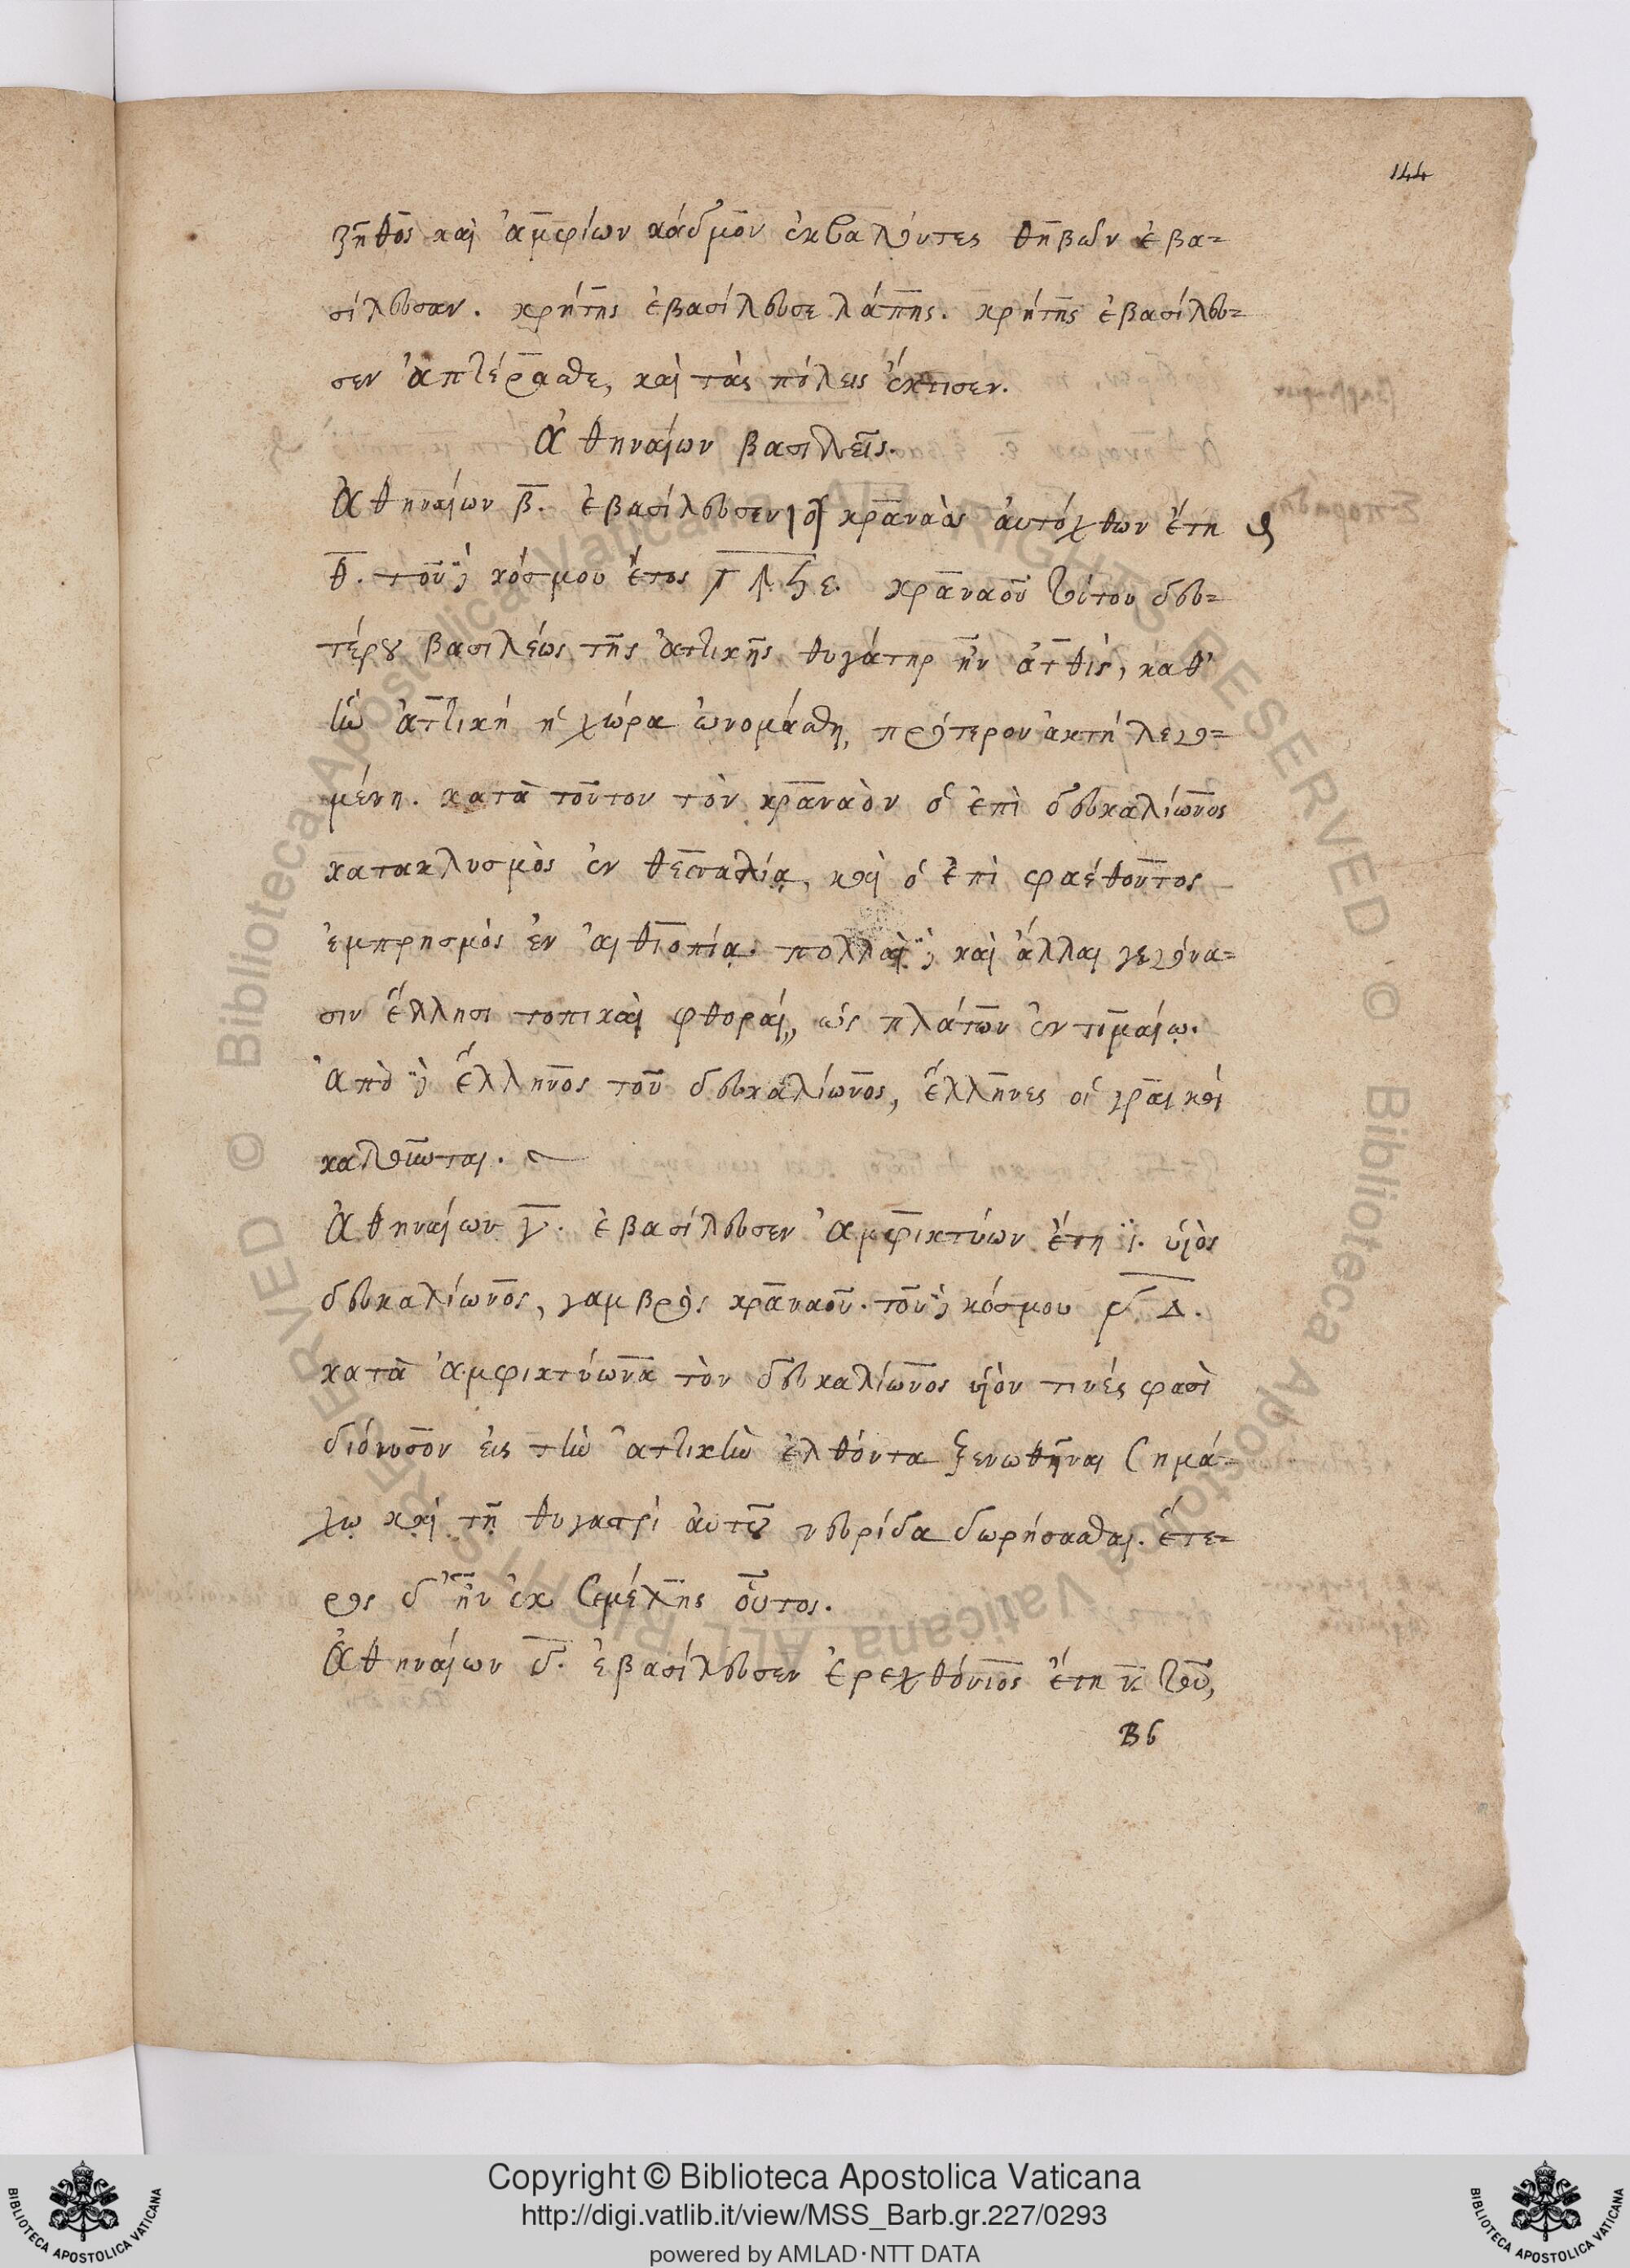 144
ζῆθος καὶ ἀμφίων κάδμον ἐκβαλόντες θηβῶν ἐβα=
σίλευσαν. κρήτης ἐβασίλευσε λάπης. κρήτης ἐβασίλευ=
σεν ἀπτέρασθε, καὶ τὰς πόλεις ἔκτισεν.
Ἀθηναίων βασιλεῖς.
Ἀθηναίων β. ἐβασίλευσεν ὁ κραναὸς αὐτόχθων ἔτη
θ. τοῦ δὲ κόσμου ἔτος κραναοῦ τούτου δευ=
τέρου βασιλέως τῆς ἀττικῆς θυγάτηρ ἦν ἀτθὶς, καθ'
ἣν ἀττικὴ ἡ χώρα ὠνομάσθη, πρότερον ἀκτὴ λεγο=
μένη. κατὰ τοῦτον τὸν κραναὸν ὁ ἐπὶ δευκαλίωνος
κατακλυσμὸς ἐν θεσσαλίᾳ, καὶ ὁ ἐπὶ φαέθοντος
ἐμπρησμὸς ἐν αἰθιοπίᾳ. πολλαὶ δὲ καὶ ἄλλαι γεγόνα=
σιν ἕλλησι τοπικαὶ φθοραὶ, ὡς πλάτων ἐν τιμαίῳ.
ἀπὸ δὲ ἕλληνος τοῦ δευκαλίωνος, ἕλληνες οἱ γραικοὶ
καλοῦνται.
Ἀθηναίων γ. ἐβασίλευσεν ἀμφικτύων ἔτη ι. υἱὸς
δευκαλίωνος, γαμβρὸς κραναοῦ. τοῦ δὲ κόσμου
κατὰ ἀμφικτύωνα τὸν δευκαλίωνος υἱόν τινές φασὶ
διόνυσον εἰς τὴν ἀττικὴν ἐλθόντα ξενωθῆναι σημά=
χῳ καὶ τῇ θυγατρὶ αὐτοῦ νευρίδα δωρήσασθαι. ἕτε=
ρος δ' ἦν ἐκ σεμέλης οὗτος.
Ἀθηναίων δ. ἐβασίλευσεν ἐρεχθόνιος ἔτη ν. τοῦ,
B6
Copyright © Biblioteca Apostolica Vaticana
http://digi.vatlib.it/view/MSS_Barb.gr.227/0293
powered by AMLAD·NTT DATA
BIBLIOTECA APOSTOLICA VATICANA
BIBLIOTECA APOSTOLICA VATICANA